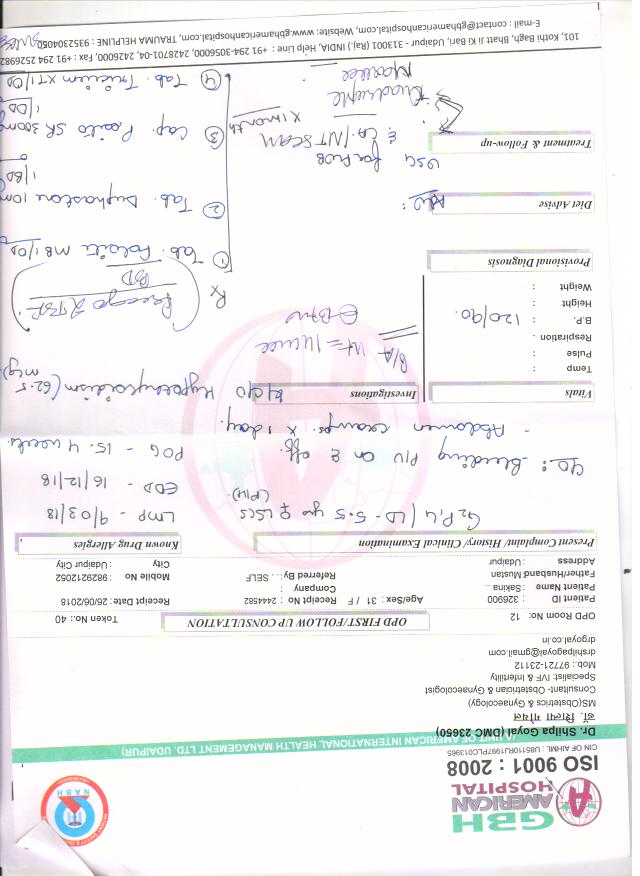 GBH
AMERICAN
HOSPITAL
ISO 9001 : 2008
CIN OF AIHMIL : U85110RJ1997PLC013965
(A UNIT OF AMERICAN INTERNATIONAL HEALTH MANAGEMENT LTD. UDAIPUR)
NABH
Dr. Shilpa Goyal (DMC 23650)
डॉ. शिल्पा गोयल
(MS/Obstetrics & Gynaecology)
Consultant- Obstetrician & Gynaecologist
Specialist: IVF & Infertility
Mob.: 97721-23112
drshilpagoyal@gmail.com
drgoyal.co.in
OPD FIRST/FOLLOW UP CONSULTATION
OPD Room No: 12
Token No.: 40
Patient ID : 326900
Age/Sex: 31 / F
Receipt No : 2444582
Receipt Date: 26/06/2018
Patient Name : Sakina ..
Company :
Father/Husband Mustan
Referred By: .. SELF
Mobile No 9829212052
Address : Udaipur
City : Udaipur City
Present Complaint/ History/ Clinical Examination
Known Drug Allergies
LD - 5.5 yr ♀ LSCS
LMP - 9/03/18
EDD - 16/12/18
POG - 15.4 weeks
Bleeding P/V on & off.
- Abdomen cramps x 1 day.
Vitals
Investigations
Hypothyroidism (62.5 mcg)
Temp :
Pulse :
Respiration :
B.P. : 120/90
Height :
Weight :
P/A
Rx
BD
Provisional Diagnosis
① Tab. Folcite MB 1/OD
② Tab. Duphaston 10m
1/BD
Diet Advise
Adv:
Treatment & Follow-up
USG for FWB
& Ca. / NT SCAN
③ Cap. SR 300mg
1/OD
x 1 month
Quadruple
Marker
④ Tab. XT 1/OD
101, Kothi Bagh, Bhatt Ji Ki Bari, Udaipur - 313001 (Raj.) INDIA, Help Line : +91 294-3056000, 2426000, 2428701-04, Fax : +91 294 2526982
E-mail : contact@gbhamericanhospital.com, Website: www.gbhamericanhospital.com, TRAUMA HELPLINE : 9352304050